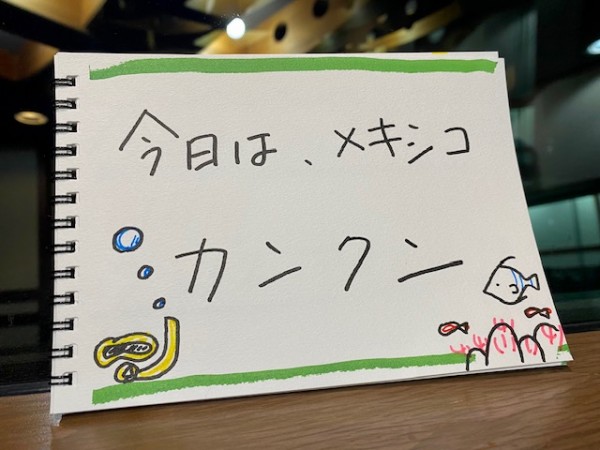 今日は、メキシコ
カンクン